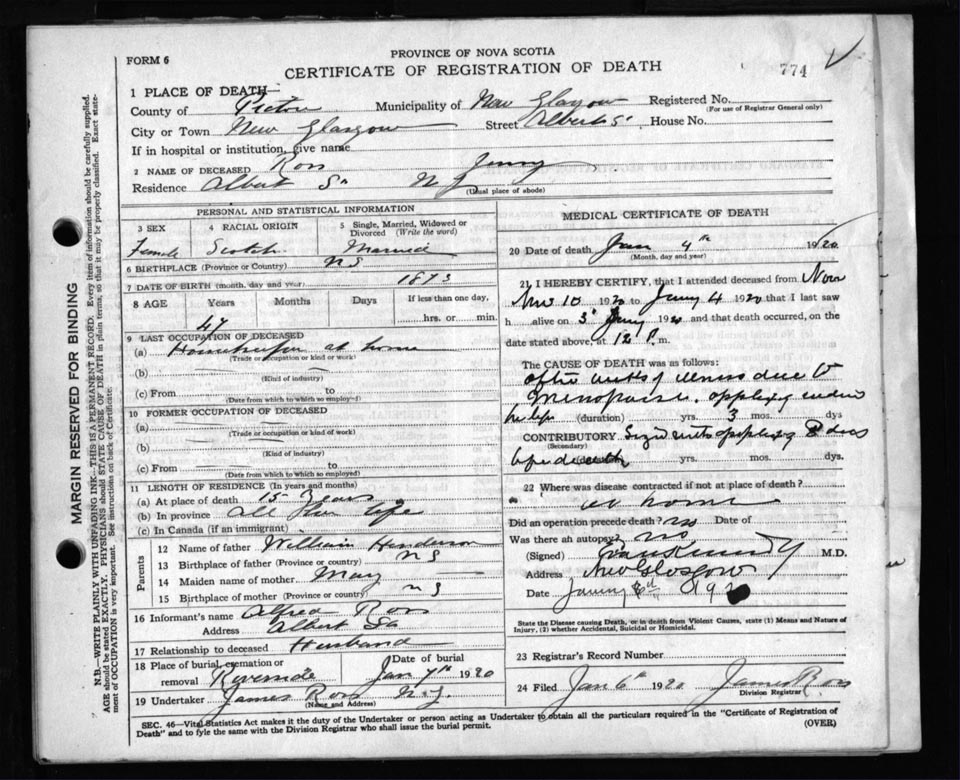 PROVINCE OF NOVA SCOTIA
FORM 6
CERTIFICATE OF REGISTRATION OF DEATH
774
1 PLACE OF DEATH—
County of Pictou Municipality of New Glasgow Registered No.
(For use of Registrar General only)
City or Town New Glasgow Street Albert St House No.
If in hospital or institution, give name
2 NAME OF DECEASED Ross Jenny
Residence Albert St N G
(Usual place of abode)
PERSONAL AND STATISTICAL INFORMATION
3 SEX 4 RACIAL ORIGIN 5 Single, Married, Widowed or Divorced (Write the word)
Female Scotch Married
6 BIRTHPLACE (Province or Country) N S
7 DATE OF BIRTH (month, day and year) 1873
8 AGE Years Months Days If less than one day,
47 hrs. or min.
9 LAST OCCUPATION OF DECEASED
(a) Housekeeper at home
(Trade or occupation or kind or work)
(b)
(Kind of industry)
(c) From to
(Date from which to which so employed)
10 FORMER OCCUPATION OF DECEASED
(a)
(Trade or occupation or kind of work)
(b)
(Kind of industry)
(c) From to
(Date from which to which so employed)
11 LENGTH OF RESIDENCE (In years and months)
(a) At place of death 15 Years
(b) In province All Her Life
(c) In Canada (if an immigrant)
Parents
12 Name of father William Henderson
13 Birthplace of father (Province or country) N S
14 Maiden name of mother May
15 Birthplace of mother (Province or country) N S
16 Informant's name Alfred Ross
Address Albert St
17 Relationship to deceased Husband
18 Place of burial, cremation or removal Riverside Date of burial Jan 7th 1920
19 Undertaker James Ross N. G.
(Name and Address)
MEDICAL CERTIFICATE OF DEATH
20 Date of death Jan 4th 1920
(Month, day and year)
21 I HEREBY CERTIFY, that I attended deceased from Nov
10 1920 to 4 1920 that I last saw
h alive on 3 1920 and that death occurred, on the
date stated above, at 12 P. m.
The CAUSE OF DEATH was as follows:
illness due to
Menopause. apoplexy
(duration) yrs. 3 mos. dys
CONTRIBUTORY apoplexy days
(Secondary)
before death yrs. mos. dys.
22 Where was disease contracted if not at place of death?
at home
Did an operation precede death? no Date of
Was there an autopsy? no
(Signed) M.D.
Address New Glasgow
Date 192
State the Disease causing Death, or in death from Violent Causes, state (1) Means and Nature of
Injury, (2) whether Accidental, Suicidal or Homicidal.
23 Registrar's Record Number
24 Filed Jan 6th 1920 James Ross
Division Registrar
SEC. 46—Vital Statistics Act makes it the duty of the Undertaker or person acting as Undertaker to obtain all the particulars required in the "Certificate of Registration of
Death" and to fyle the same with the Division Registrar who shall issue the burial permit. (OVER)
MARGIN RESERVED FOR BINDING
N.B.—WRITE PLAINLY WITH UNFADING INK—THIS IS A PERMANENT RECORD. Every item of information should be carefully supplied.
AGE should be stated EXACTLY. PHYSICIANS should STATE CAUSE OF DEATH in plain terms, so that it may be properly classified. Exact state-
ment of OCCUPATION is very important. See instructions on back of Certificate.